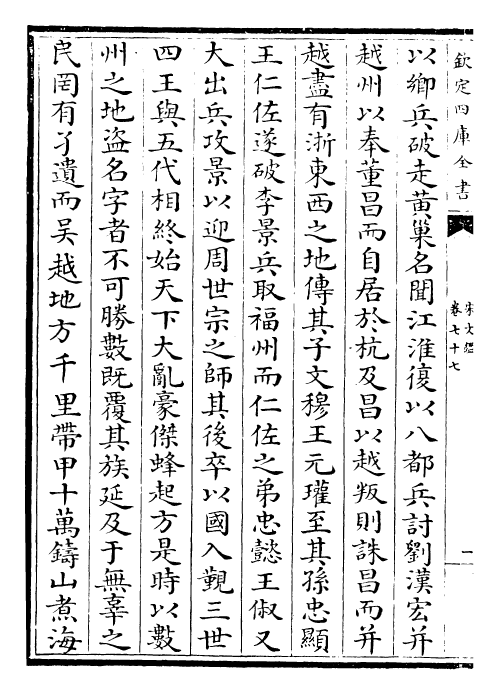 欽定四庫全書
宋文鑑
卷七十七
一
以鄉兵破走黃巢名聞江淮復以八都兵討劉漢宏并
越州以奉董昌而自居於杭及昌以越叛則誅昌而并
越盡有浙東西之地傳其子文穆王元瓘至其孫忠顯
王仁佐遂破李景兵取福州而仁佐之弟忠懿王俶又
大出兵攻景以迎周世宗之師其後卒以國入覲三世
四王與五代相終始天下大亂豪傑蜂起方是時以數
州之地盜名字者不可勝數既覆其族延及于無辜之
民罔有孑遺而吳越地方千里帶甲十萬鑄山煮海